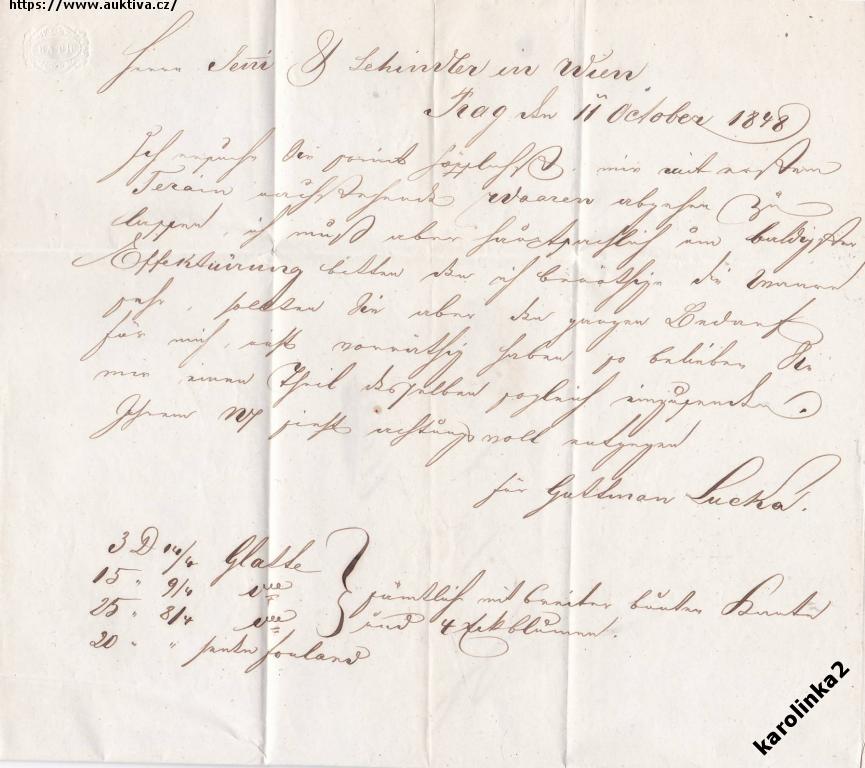 https://www.auktiva.cz/
Herrn Jenni & Schindler in Wien
Prag den 11 October 1848
Ich ersuche Sie somit höflichst, mir mit erstem
Termin nachstehende Waaren abgehen zu
lassen, ich muß aber hauptsachlich um baldigster
Effektuirung bitten den ich benöthige die Waare
sehr, sollten Sie aber den ganzen Bedarf
für mich, nicht vorräthig haben so belieben Sie
mir einen Theil desselben sogleich einzusenden.
Ihrem achtungsvoll entgegen
für Guttman Lucka.
3 D 10/4 Glatte
15 " 9/4
25 " 8/4 sämtlich mit breiter bunter Kante
und 4 Ekblumen.
20 " " foulard
karolinka2